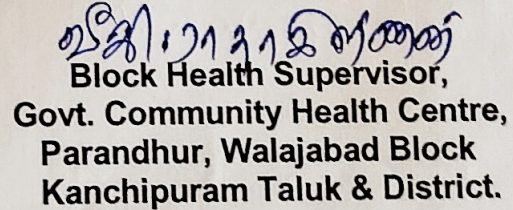 வீ.இராதாகிருஷ்ணன்
Block Health Supervisor,
Govt. Community Health Centre,
Parandhur, Walajabad Block
Kanchipuram Taluk & District.